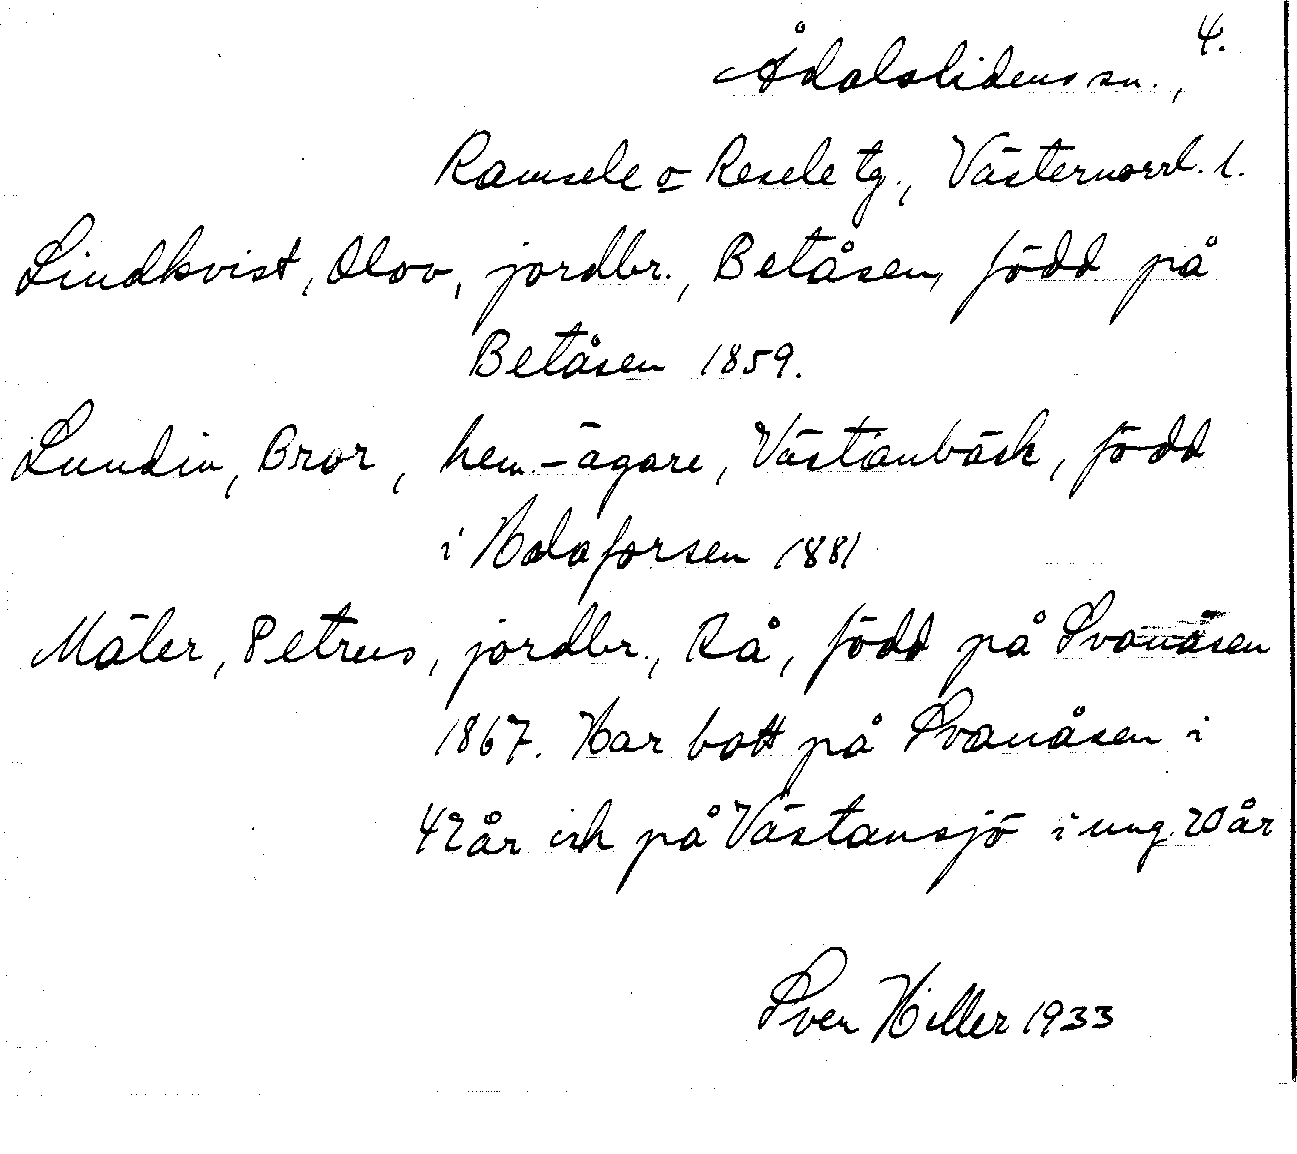 4.
Ådalslidens sn.,
Ramsele o Resele tg., Västernorrl. l.
Lindkvist, Olov, jordbr., Betåsen, född på
Betåsen 1859.
Lundin, Bror, hem.-ägare, Västanbäck, född
i Holaforsen 1881
Mäler, Petrus, jordbr., Rå, född på Svanåsen
1867. Har bott på Svanåsen i
42 år och på Västansjö i ung. 20 år
Sven Hiller 1933